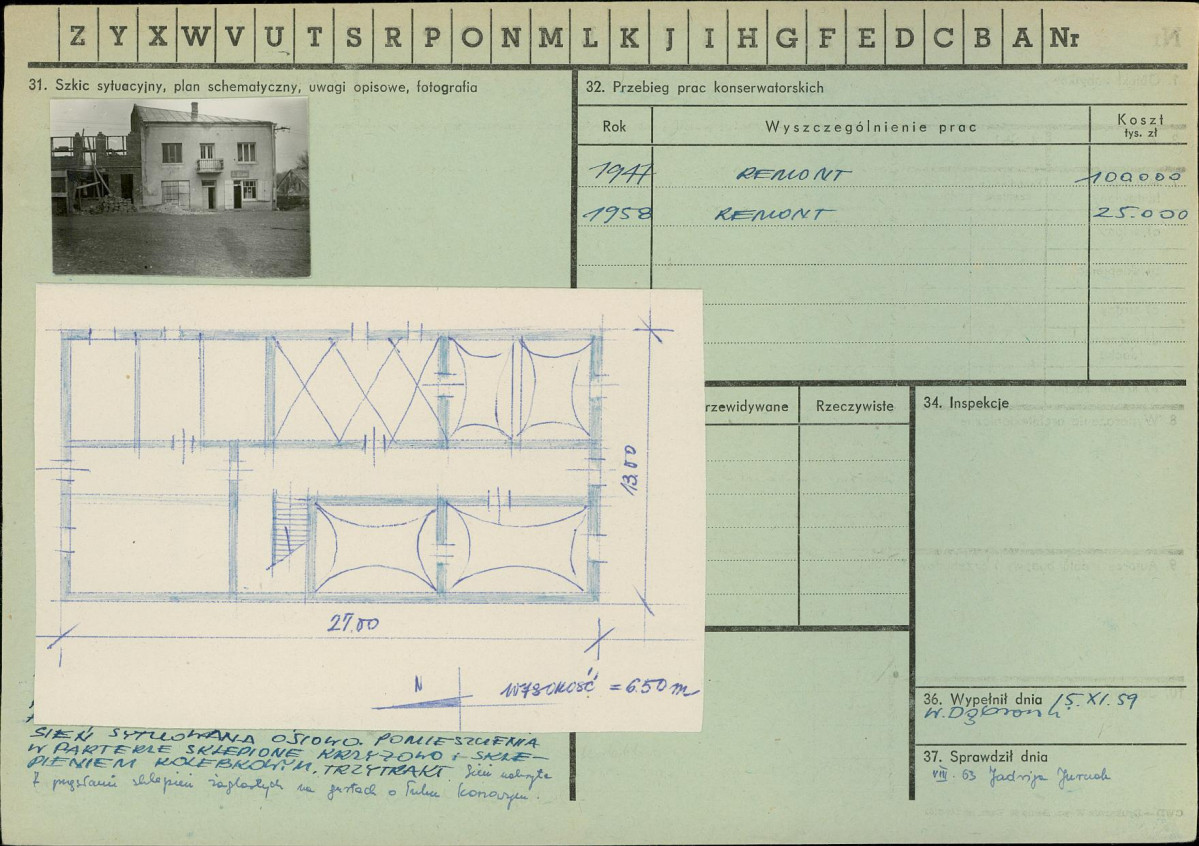 Z Y X W V U T S R P O N M L K J I H G F E D C B A Nr
31. Szkic sytuacyjny, plan schematyczny, uwagi opisowe, fotografia
13.00
27.00
N
WYSOKOŚĆ = 6.50 m
SIEŃ SYTUOWANA OSIOWO. POMIESZCZENIA
W PARTERZE SKLEPIONE KRZYŻOWO I SKLE-
PIENIEM KOLEBKOWYM, TRZYTRAKT. Sień nakryta
sklepień żaglastych na gurtach o łuku koszowym.
32. Przebieg prac konserwatorskich
Rok Wyszczególnienie prac Koszt
tys. zł
1947 REMONT 100000
1958 REMONT 25.000
rzewidywane Rzeczywiste
34. Inspekcje
36. Wypełnił dnia 15.XI.59
37. Sprawdził dnia
VIII. 63 Jadwiga